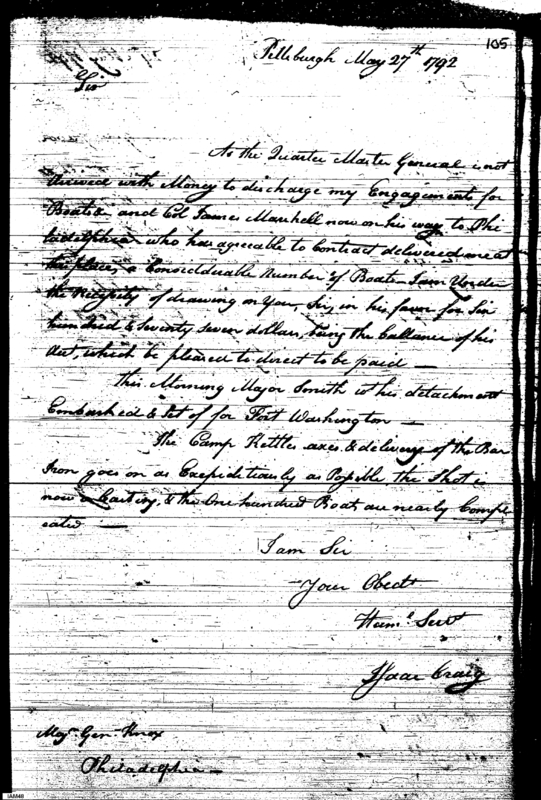 105
Pittsburgh May 27th 1792
Sir
As the Quarter Master General is not
Arived with Money to discharge my Engagements for
Boats & and Col James Marshell now on his way to Phi
ladelphia who has agreeable to Contract delivered me at
this place, a Considderable Number of Boats I am Under
the Necessity of drawing on You, Sir, in his favor for Six
hundred & Seventy seven dollars, being the ballance of his
Act, which be pleased to direct to be paid —
This Morning Major Smith & his detachment
Embarked & Set of for Fort Washington —
The Camp Kettles axes & delivery of the Bar
Iron goes on as Expiditiously as Possible the Shot is
now Casting, & the One hundred Boats are nearly Compl
eated —
I am Sir
Your Obedt
Huml. Servt
Isaac Craig
Majr. Genl. Knox
Philadelphia —
IAM48